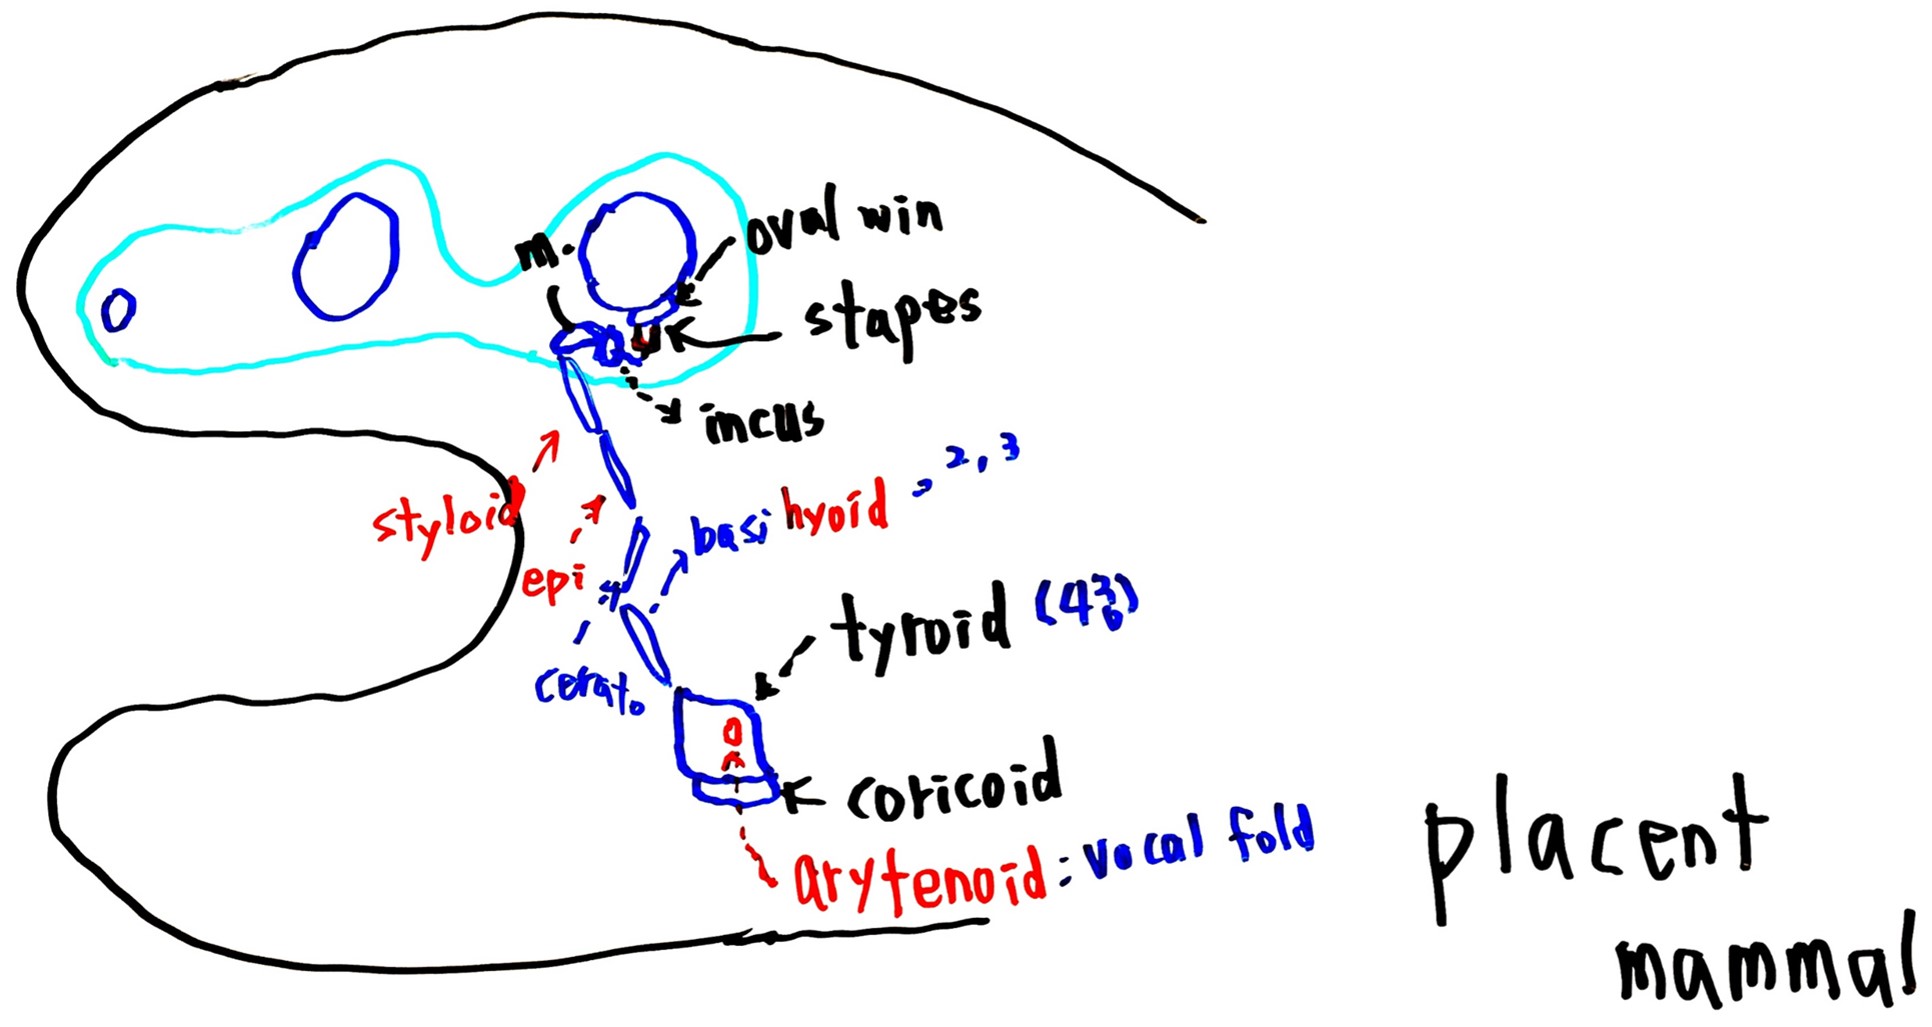 m.
oval win
stapes
incus
styloid
epi
basi hyoid 2, 3
cerato
tyroid
coricoid
arytenoid : vocal fold
placent
mammal